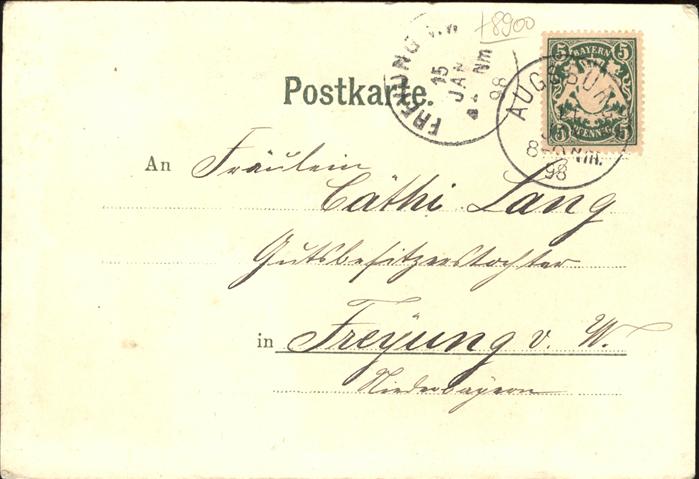 +8900
FREYUNG v. W.
15
JAN
Nm
98
5 BAYERN 5
5 PFENNIG 5
AUGSBURG
8
Nm.
98
Postkarte.
An Fräulein
Cäthi Lang
Gutsbesitzerstochter
in Freÿung v. W.
Niederbayern